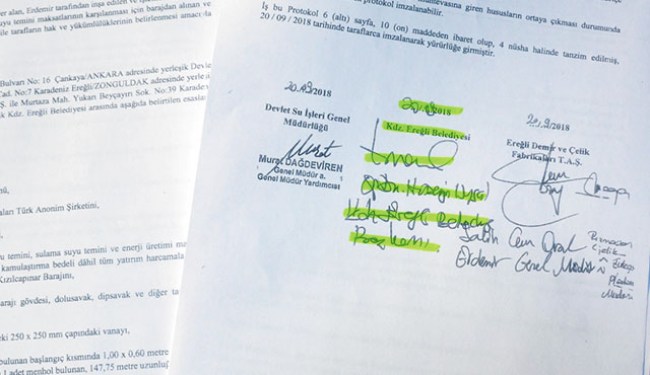 lar alan, Erdemir tarafından inşa edilen ve
suyu temini maksatlarının karşılanması için barajdan alınan ve
ile tarafların hak ve yükümlülüklerinin belirlenmesi amacıyla
Bulvarı No: 16 Çankaya/ANKARA adresinde yerleşik Devle
Cad. No:7 Karadeniz Ereğli/ZONGULDAK adresinde yerleşik
Ş. ile Murtaza Mah. Yukarı Beyçayırı Sok. No:39 Karade
k Kdz. Ereğli Belediyesi arasında aşağıda belirtilen esaslar
ü,
aları Türk Anonim Şirketini,
u temini, sulama suyu temini ve enerji üretimi ma
kamulaştırma bedeli dâhil tüm yatırım harcamala
Kızılcapınar Barajını,
arajı gövdesi, dolusavak, dipsavak ve diğer ta
ki 250 x 250 mm çapındaki vanayı,
bulunan başlangıç kısmında 1,00 x 0,60 metre
1 adet menhol bulunan, 147,75 metre uzunluğ
giren hususların ortaya çıkması durumunda
protokol imzalanabilir.
İş bu Protokol 6 (altı) sayfa, 10 (on) maddeden ibaret olup, 4 nüsha halinde tanzim edilmiş,
20 / 09 / 2018 tarihinde taraflarca imzalanarak yürürlüğe girmiştir.
20.09.2018
Devlet Su İşleri Genel
Müdürlüğü
Murat DAĞDEVİREN
Genel Müdür a.
Genel Müdür Yardımcısı
20.09.2018
Kdz. Ereğli Belediyesi
Hüseyin Uysal
Kdz Ereğli Belediye
Başkanı
20.9.2018
Ereğli Demir ve Çelik
Fabrikaları T.A.Ş.
Salih Cem Oral
Erdemir Genel Müdür